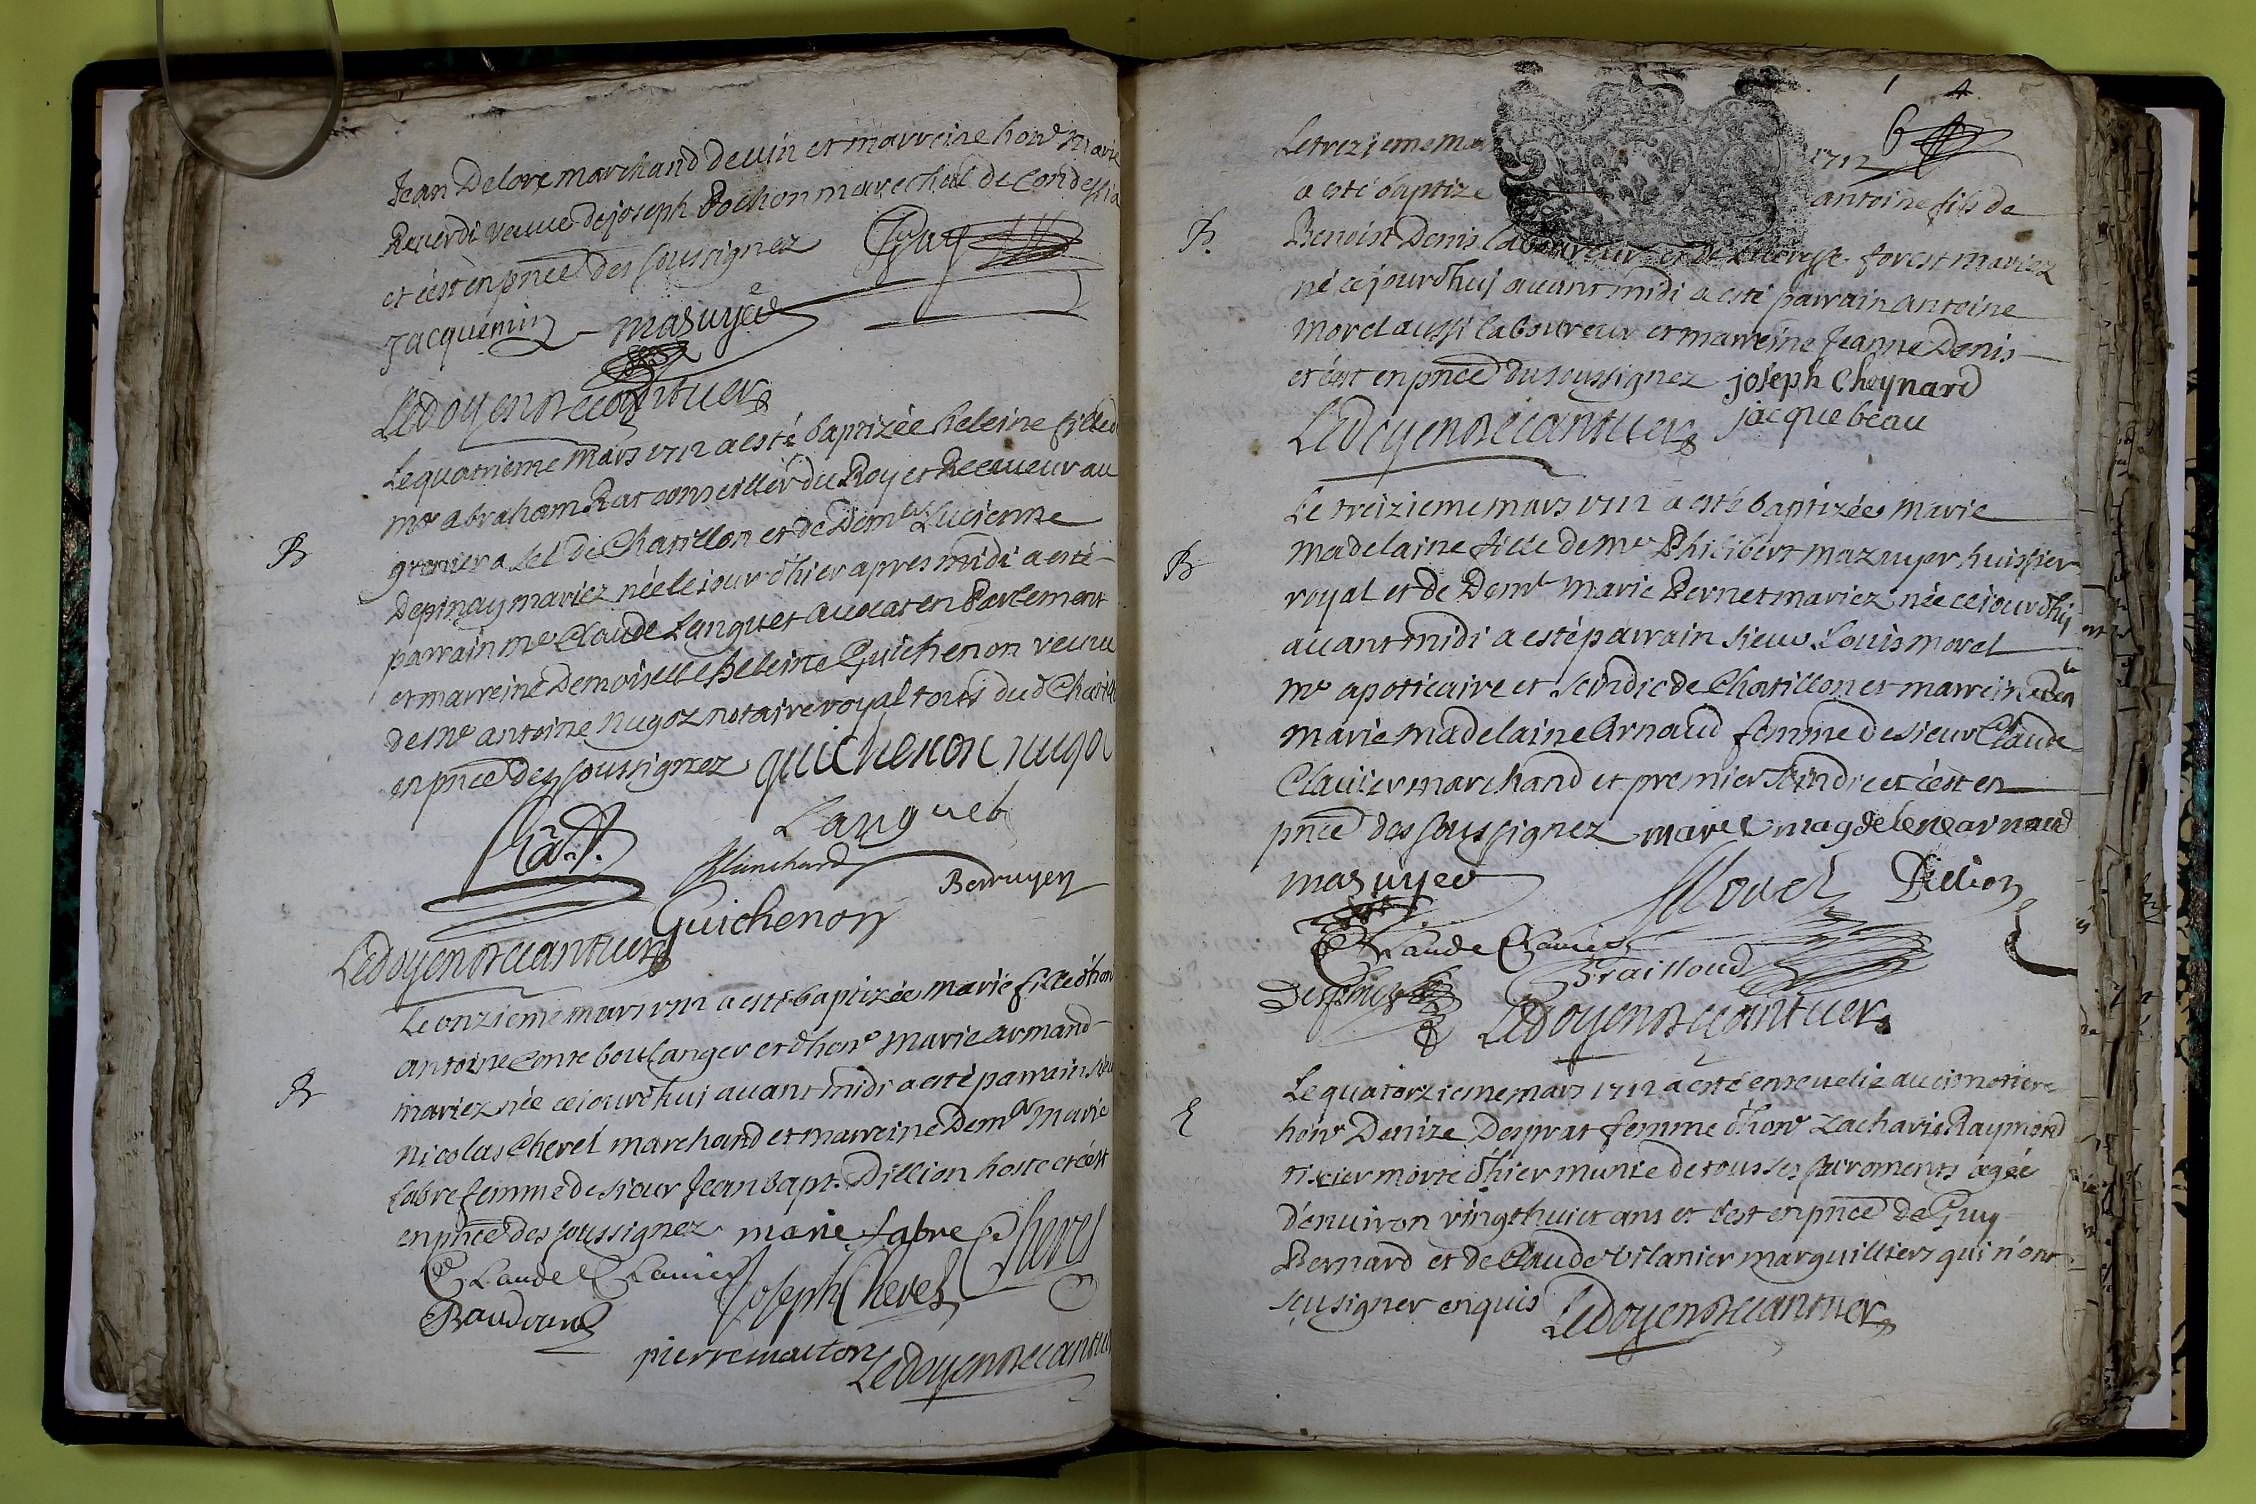 Jean Delore marchand de vin et marreine honê Marie
Reverdi veuve de joseph Bochon marechal de Condessia
et c'est en pñce des soussignez
Jacquemin masuyer
Ledoyen &
Le quatrieme mars 1712 a esté baptizée heleine fille de
mre abraham Rat conseiller du Roy et Receveur au
B
grenier a sel de Chatillon et de Demlle Lucienne
Depinay mariez née le jour d'hier apres midi a esté
parrain mre Claude Languet avocat en Parlement
et marreine Demoiselle heleine Guichenon veuve
de mre antoine nugoz notaire royal tous du d Chatil
en pñce des soussignez guichenon nugoz
Rat Languet
Blanchard Berruyer
Guichenon
Ledoyen &
Le onzieme mars 1712 a esté baptizée marie fille d'hon
antoine Conte boulanger et d'honê Marie armand
B
mariez née cejourd'hui avant midi a esté parrain sieu
Nicolas Cherel marchand et marreine Demlle Marie
fabre femme de sieur Jean bapt. Dillion hoste et c'est
en pñce des soussignez marie fabre Cherel
Claude Clavier Joseph Cherel
Baudrand
pierre
Ledoyen
6
Le treizieme mar 1712
a esté baptize antoine fils de
B.
Benoist Denis laboureur et de forest mariez
né cejourd'huj avant midi a esté parrain antoine
morel aussi laboureur et marreine Jeanne Denis
et c'est en pñce du soussignez joseph Cheynard
Ledoyen jacque beau
Le treizieme mars 1712 a esté baptizée marie
madelaine fille de mre Philibert mazuyer huissier
B
royal et de Demle Marie Pernet mariez née cejourd'huj
avant midi a esté parrain sieur Louis morel
mre apoticaire et scindic de Chatillon et marreine Dem
marie madelaine Arnaud femme de sieur Claude
Clavier marchand et premier scindic et c'est en
pñce des soussignez marie magdelene arnaud
masuyer Morel Dilion
Claude Clavier
Trailloud
Ledoyen
Le quatorzieme mars 1712 a esté ensevelie au cimetiere
E
honê Denize Desprat femme d'honê Zacharie Raymond
tixier morte d'hier munie de tous ses sacrements agée
d'environ vingt huict ans et c'est en pñce de Guy
Bernard et de Claude Vilanier marguilliers qui n'ont
sçu signer enquis Ledoyen